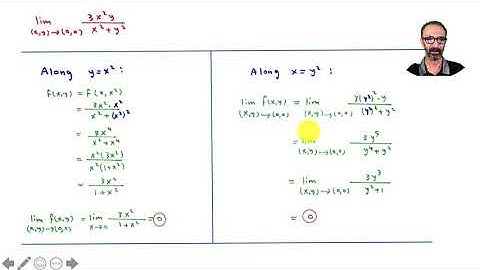 lim (x,y)→(0,0) 3x²y / x²+y²
Along y=x² :
f(x,y) = f(x,x²)
= 3x²·x² / x²+(x²)²
= 3x⁴ / x²+x⁴
= x²(3x²) / x²(1+x²)
= 3x² / 1+x²
lim (x,y)→(0,0) f(x,y) = lim x→0 3x² / 1+x² = 0
Along x=y² :
lim (x,y)→(0,0) f(x,y) = lim (x,y)→(0,0) 3(y²)²·y / (y²)²+y²
= lim (x,y)→(0,0) 3y⁵ / y⁴+y²
= lim (x,y)→(0,0) 3y³ / y²+1
= 0